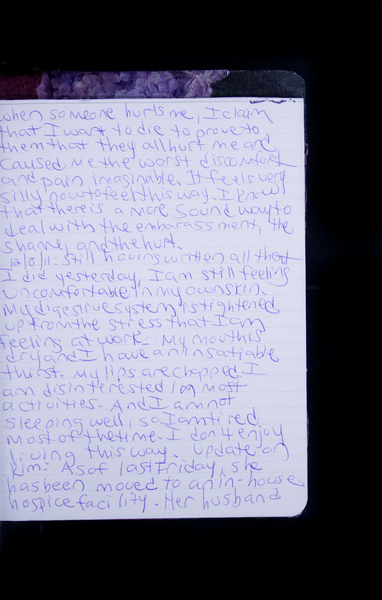 when someone hurts me, I claim
that I want to die to prove to
them that they all hurt me and
caused me the worst discomfort
and pain imaginable. It feels very
silly now to feel this way. I know
that there is a more sound way to
deal with the embarassment, the
shame, and the hurt.
12/8/11: Still having written all that
I did yesterday, I am still feeling
uncomfortable in my own skin.
My digestive system is tightened
up from the stress that I am
feeling at work. My mouth is
dry and I have an insatiable
thirst. My lips are chapped. I
am disinterested in most
activities. And I am not
sleeping well, so I am tired
most of the time. I don't enjoy
living this way. Update on
Kim: As of last Friday, she
has been moved to an in-house
hospice facility. Her husband